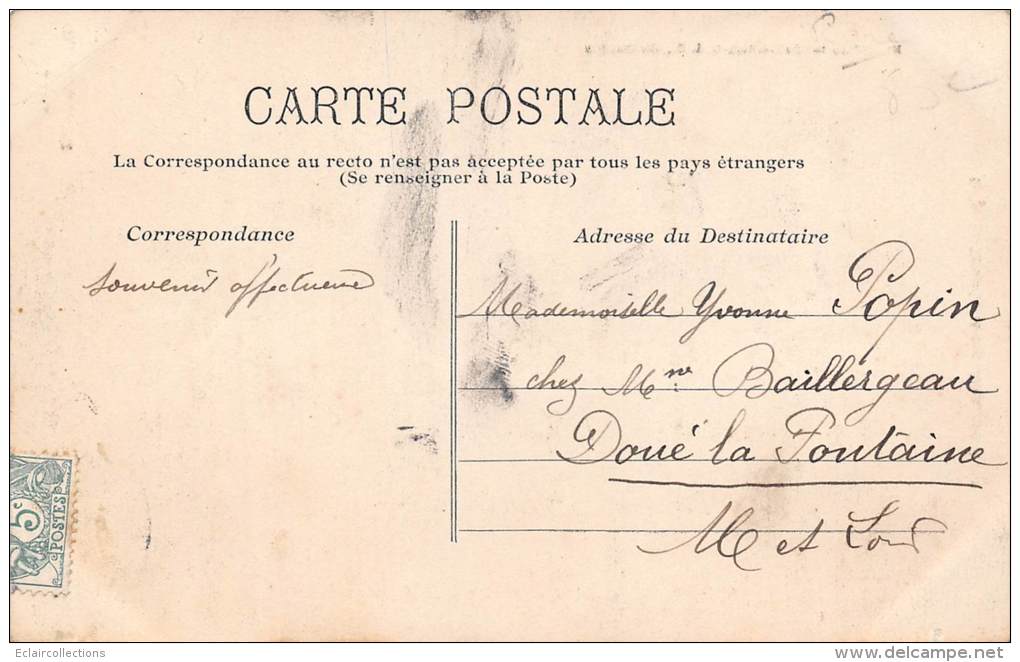 CARTE POSTALE
La Correspondance au recto n'est pas acceptée par tous les pays étrangers
(Se renseigner à la Poste)
Correspondance
Adresse du Destinataire
Souvenir affectueux
Mademoiselle Yvonne Popin
chez Mme Baillergeau
Doué la Fontaine
M et Loir
5c
POSTES
Eclaircollections
www.delcampe.net